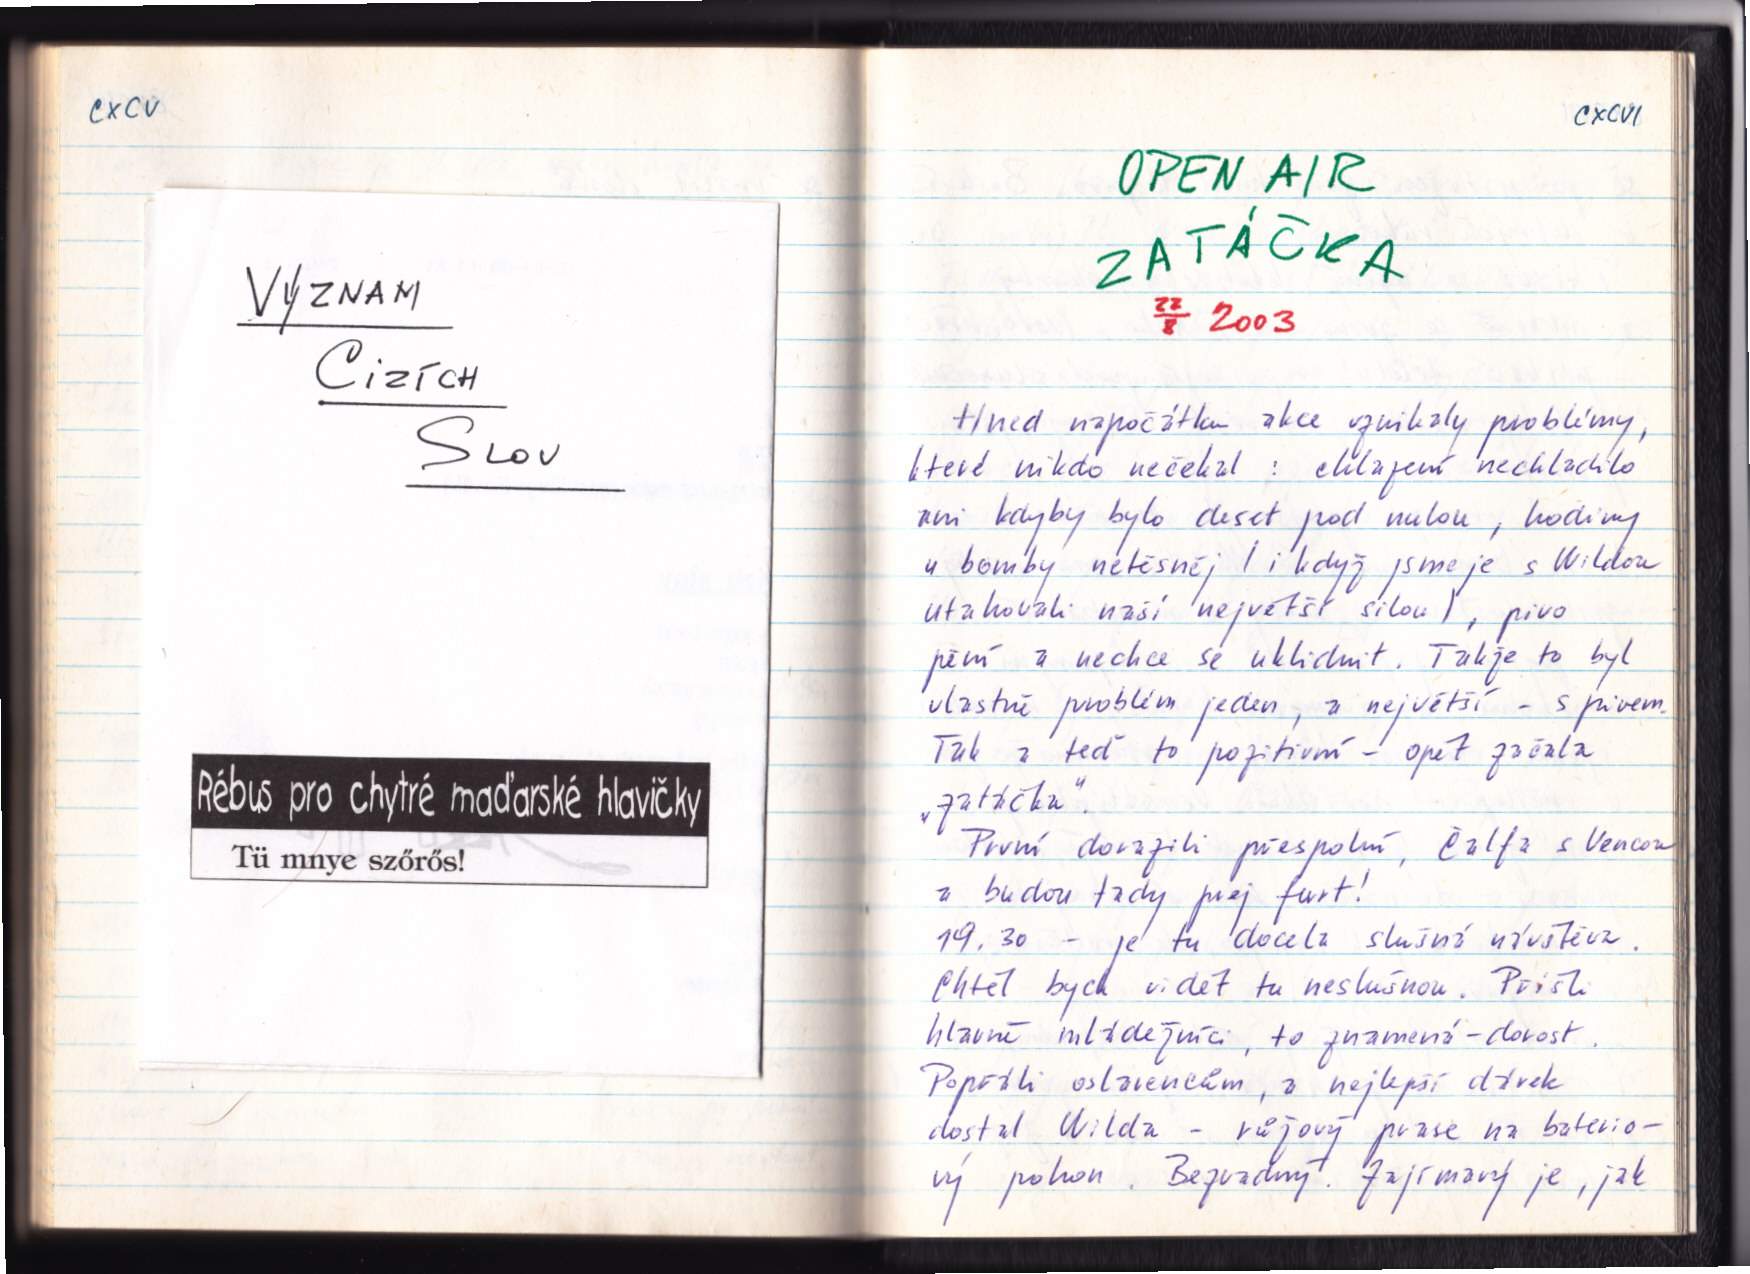 CXCV
VÝZNAM
CIZÍCH
SLOV
Rébus pro chytré maďarské hlavičky
Tü mnye szőrős!
CXCVI
OPEN AIR
ZATÁČKA
22/8 2003
Hned napočátku akce vznikaly problémy,
které nikdo nečekal : chlazení nechladilo
ani kdyby bylo deset pod nulou, hodiny
u bomby netěsněj (i když jsme je s Wildou
utahovali naší největší silou), pivo
pění a nechce se uklidnit. Takže to byl
vlastně problém jeden, a největší - s pivem.
Tak a teď to pozitivní - opět začala
„zatáčka".
První dorazili přespolní, Čalfa s Vencou
a budou tady prej furt!
19.30 - je tu docela slušná návštěva.
Chtěl bych vidět tu neslušnou. Přišli
hlavně mládežníci, to znamená - dorost.
Popřáli oslavencům, a nejlepší dárek
dostal Wilda - růžový prase na baterio-
vý pohon. Bezvadný. Zajímavý je, jak